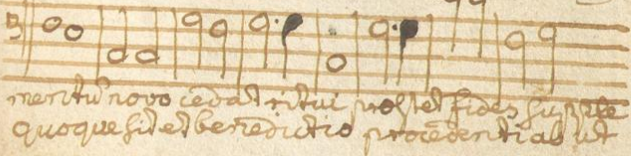 mentū novo cedat ritui prestet fides supple
quoque sit et benedictio procedenti ab ut